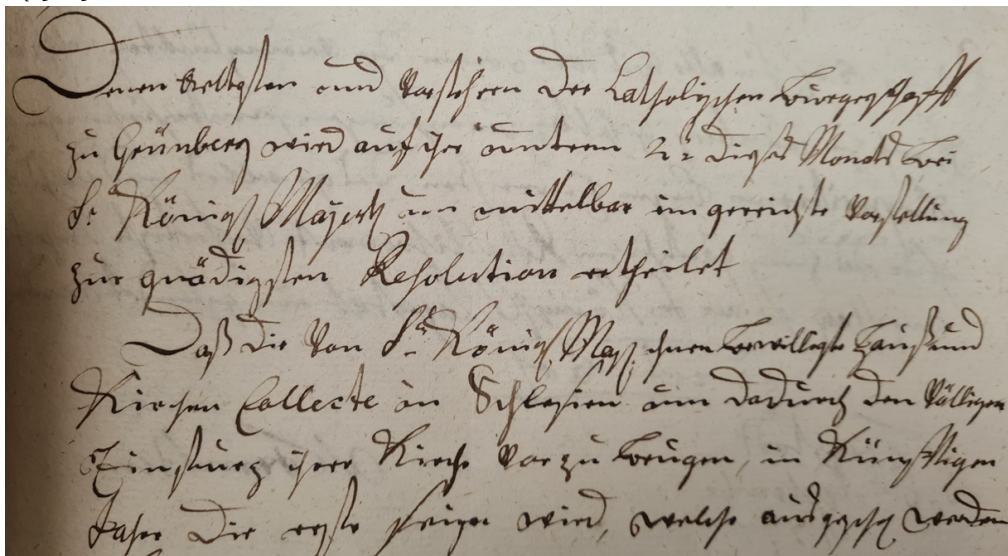 Denen Aeltesten und Vorstehern der Catholischen Bürgerschafft
zu Grünberg wird auf ihre unterm 2t. dieses Monats bei
Sr. Königl. Majest. unmittelbar eingereichte Vorstellung
zur gnädigsten Resolution ertheilet
Daß die von Sr. Königl. Maj. ihnen bewilligte Hauß und
Kirchen Collecte in Schlesien um dadurch den Völligen
Einsturz ihrer Kirche vorzubeugen, im Künfftigen
Jahre die erste seyn wird, welche ausgeschr. werden